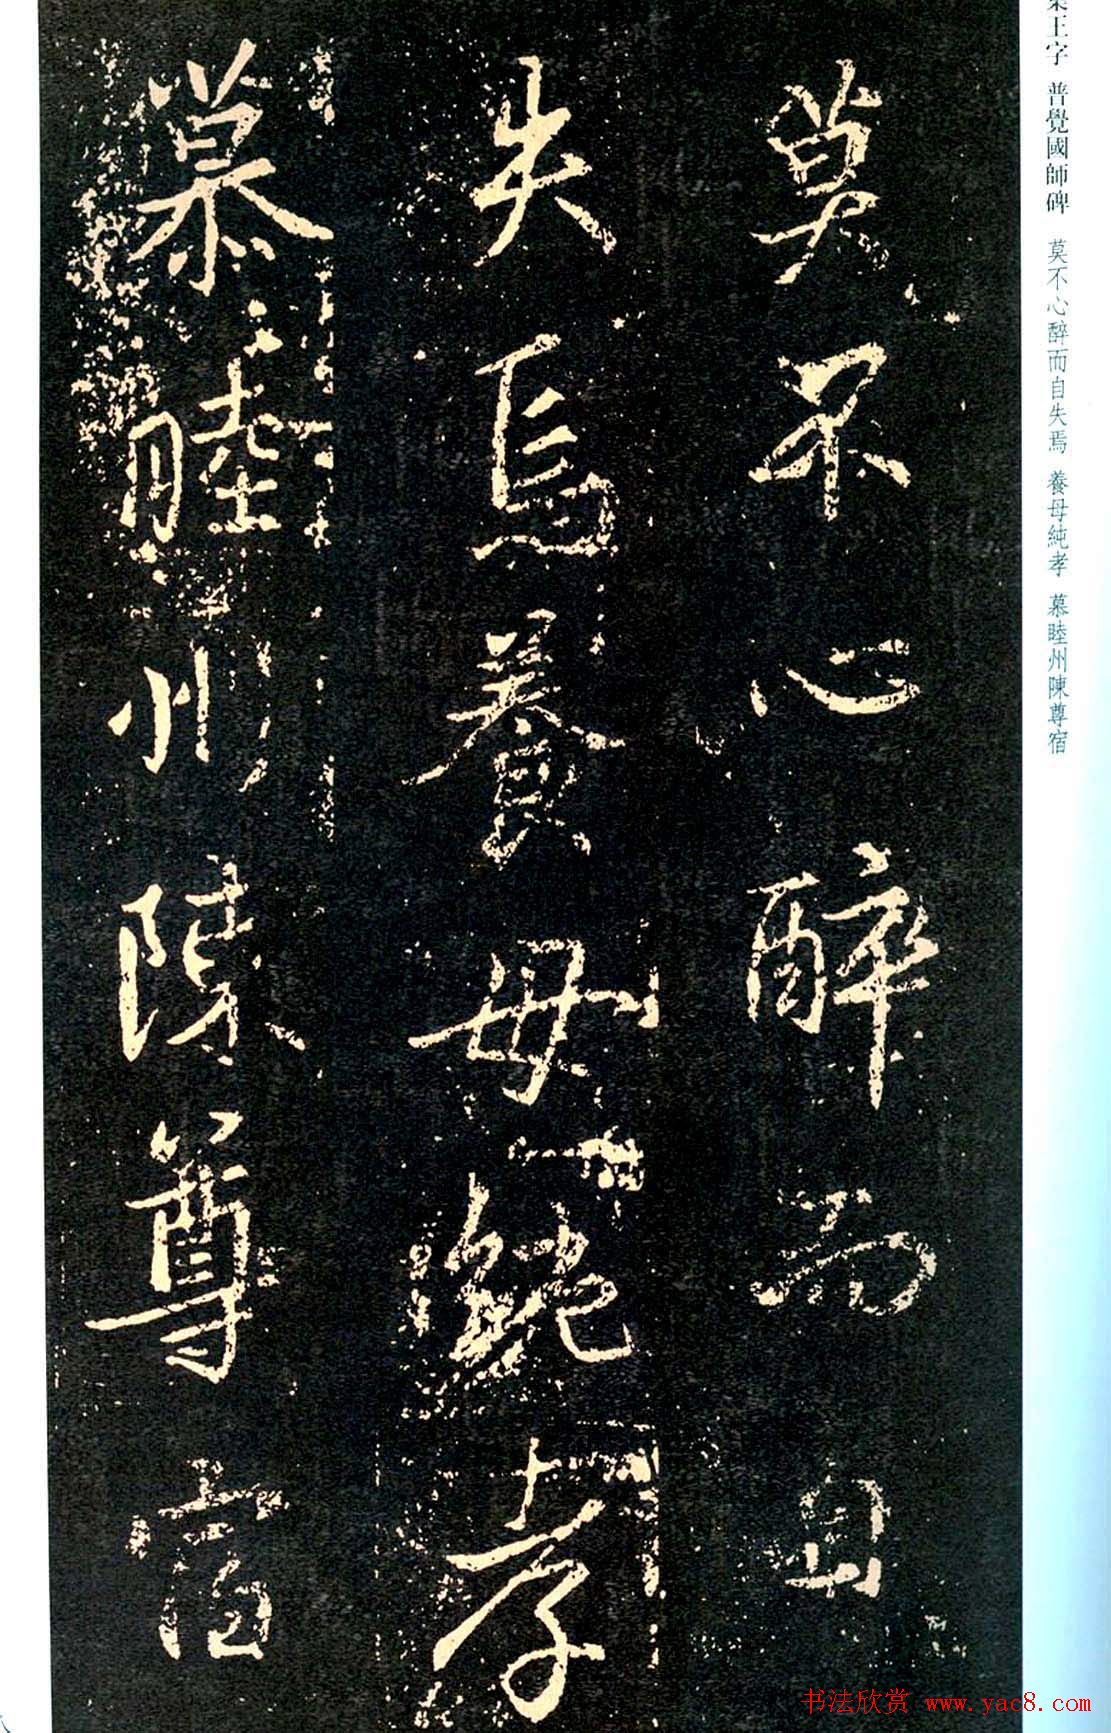 莫不心醉而自
失焉養母純孝
慕睦州陳尊宿
集王字 普覺國師碑 莫不心醉而自失焉 養母純孝 慕睦州陳尊宿
书法欣赏 www.yac8.com